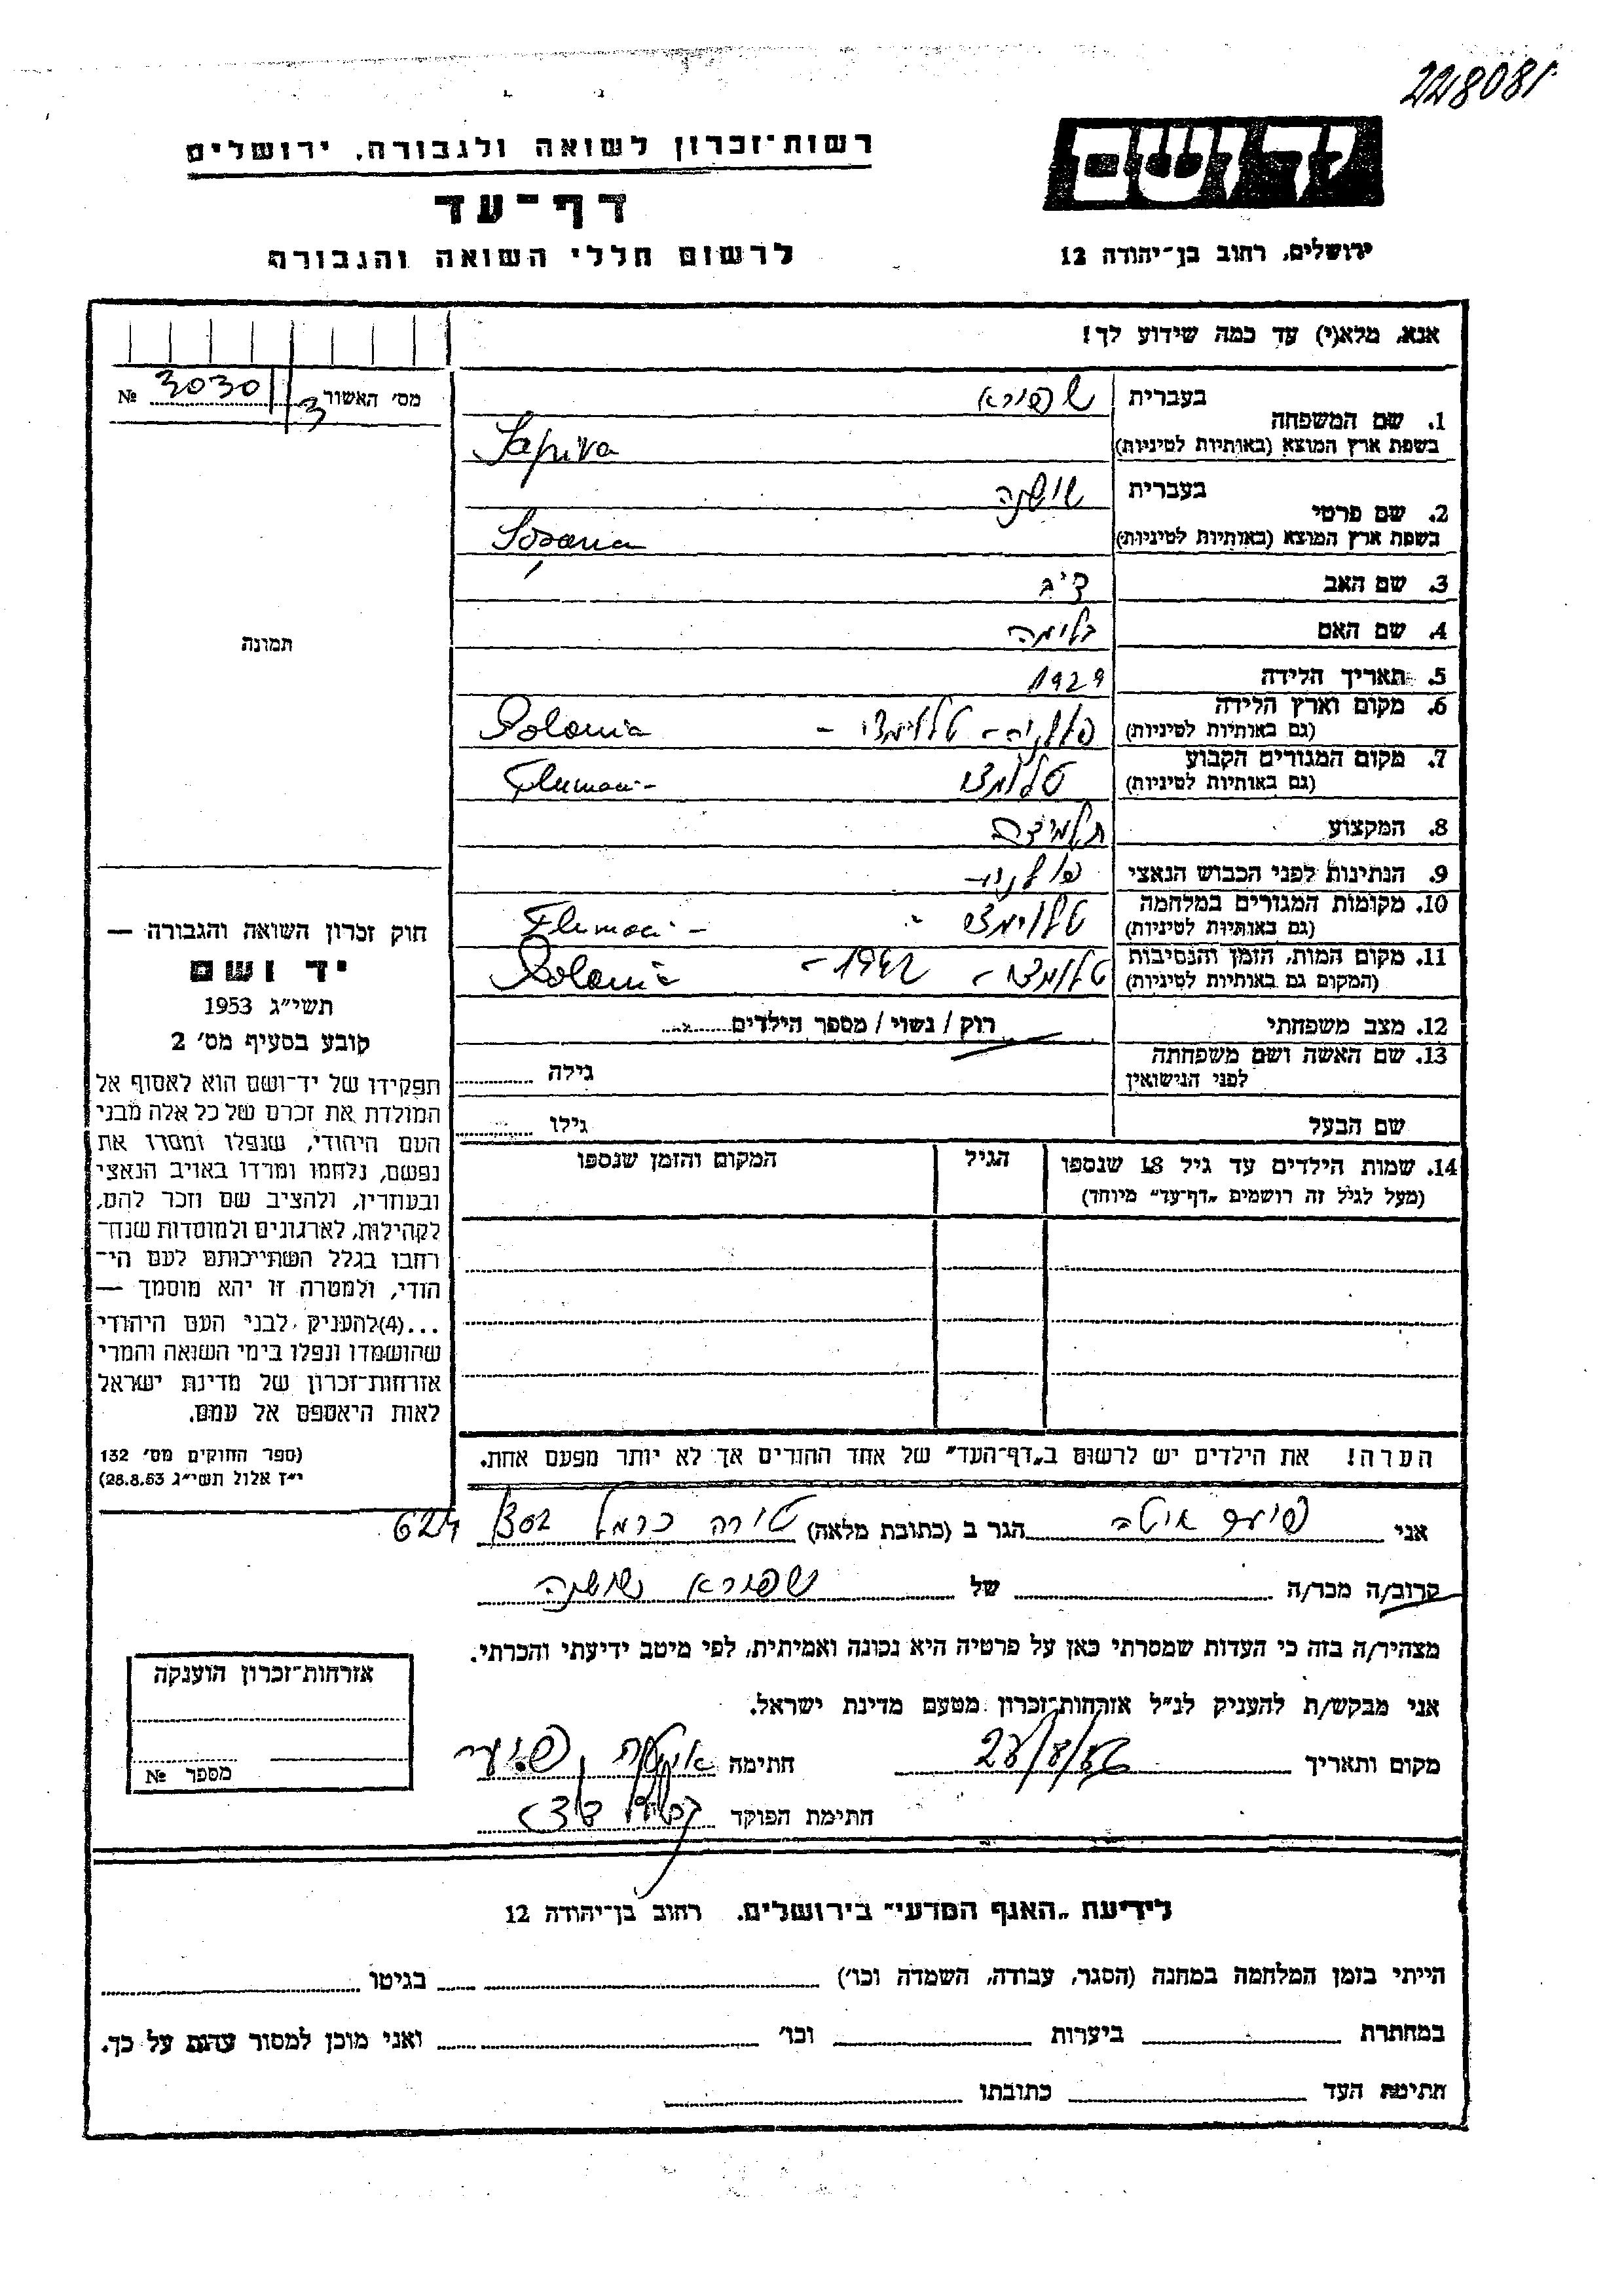 228081
רשות־זכרון לשואה ולגבורה, ירושלים
יד ושם
דף־עד
לרשום חללי השואה והגבורה
ירושלים, רחוב בן־יהודה 12
אנא, מלא(י) עד כמה שידוע לך!
מס׳ האשור 3030 №
1. שם המשפחה
בעברית שפירא
בשפת ארץ המוצא (באותיות לטיניות) Sapira
2. שם פרטי
בעברית שושנה
בשפת ארץ המוצא (באותיות לטיניות) Sosana
3. שם האב
4. שם האם
5. תאריך הלידה 1929
6. מקום וארץ הלידה
(גם באותיות לטיניות) Polonia
7. מקום המגורים הקבוע
(גם באותיות לטיניות)
8. המקצוע תלמידה
9. הנתינות לפני הכבוש הנאצי
10. מקומות המגורים במלחמה
(גם באותיות לטיניות)
11. מקום המות, הזמן והנסיבות
(המקום גם באותיות לטיניות) 1942 - Polonia
12. מצב משפחתי רוק / נשוי / מספר הילדים
13. שם האשה ושם משפחתה
לפני הנישואין גילה
שם הבעל גילו
14. שמות הילדים עד גיל 18 שנספו הגיל המקום והזמן שנספו
(מעל לגיל זה רושמים „דף־עד״ מיוחד)
הערה! את הילדים יש לרשום ב„דף־העד״ של אחד ההורים אך לא יותר מפעם אחת.
תמונה
חוק זכרון השואה והגבורה —
יד ושם
תשי״ג 1953
קובע בסעיף מס׳ 2
תפקידו של יד־ושם הוא לאסוף אל
המולדת את זכרם של כל אלה מבני
העם היהודי, שנפלו ומסרו את
נפשם, נלחמו ומרדו באויב הנאצי
ובעוזריו, ולהציב שם וזכר להם,
לקהילות, לארגונים ולמוסדות שנח־
רחבו בגלל השתייכותם לעם הי־
הודי, ולמטרה זו יהא מוסמך —
...(4)להעניק לבני העם היהודי
שהושמדו ונפלו בימי השואה והמרי
אזרחות־זכרון של מדינת ישראל
לאות היאספם אל עמם.
(ספר החוקים מס׳ 132
י״ז אלול תשי״ג 28.8.53)
אני הגר ב (כתובת מלאה) טירה כרמל
קרוב/ה מכר/ה של שפירא שושנה
מצהיר/ה בזה כי העדות שמסרתי כאן על פרטיה היא נכונה ואמיתית, לפי מיטב ידיעתי והכרתי.
אני מבקש/ת להעניק לנ״ל אזרחות־זכרון מטעם מדינת ישראל.
מקום ותאריך חתימה
חתימת הפוקד
אזרחות־זכרון הוענקה
מספר №
לידיעת „האגף המדעי״ בירושלים. רחוב בן־יהודה 12
הייתי בזמן המלחמה במחנה (הסגר, עבודה, השמדה וכו׳) בגיטו
במחתרת ביערות וכו׳ ואני מוכן למסור עדות על כך.
חתימת העד כתובתו